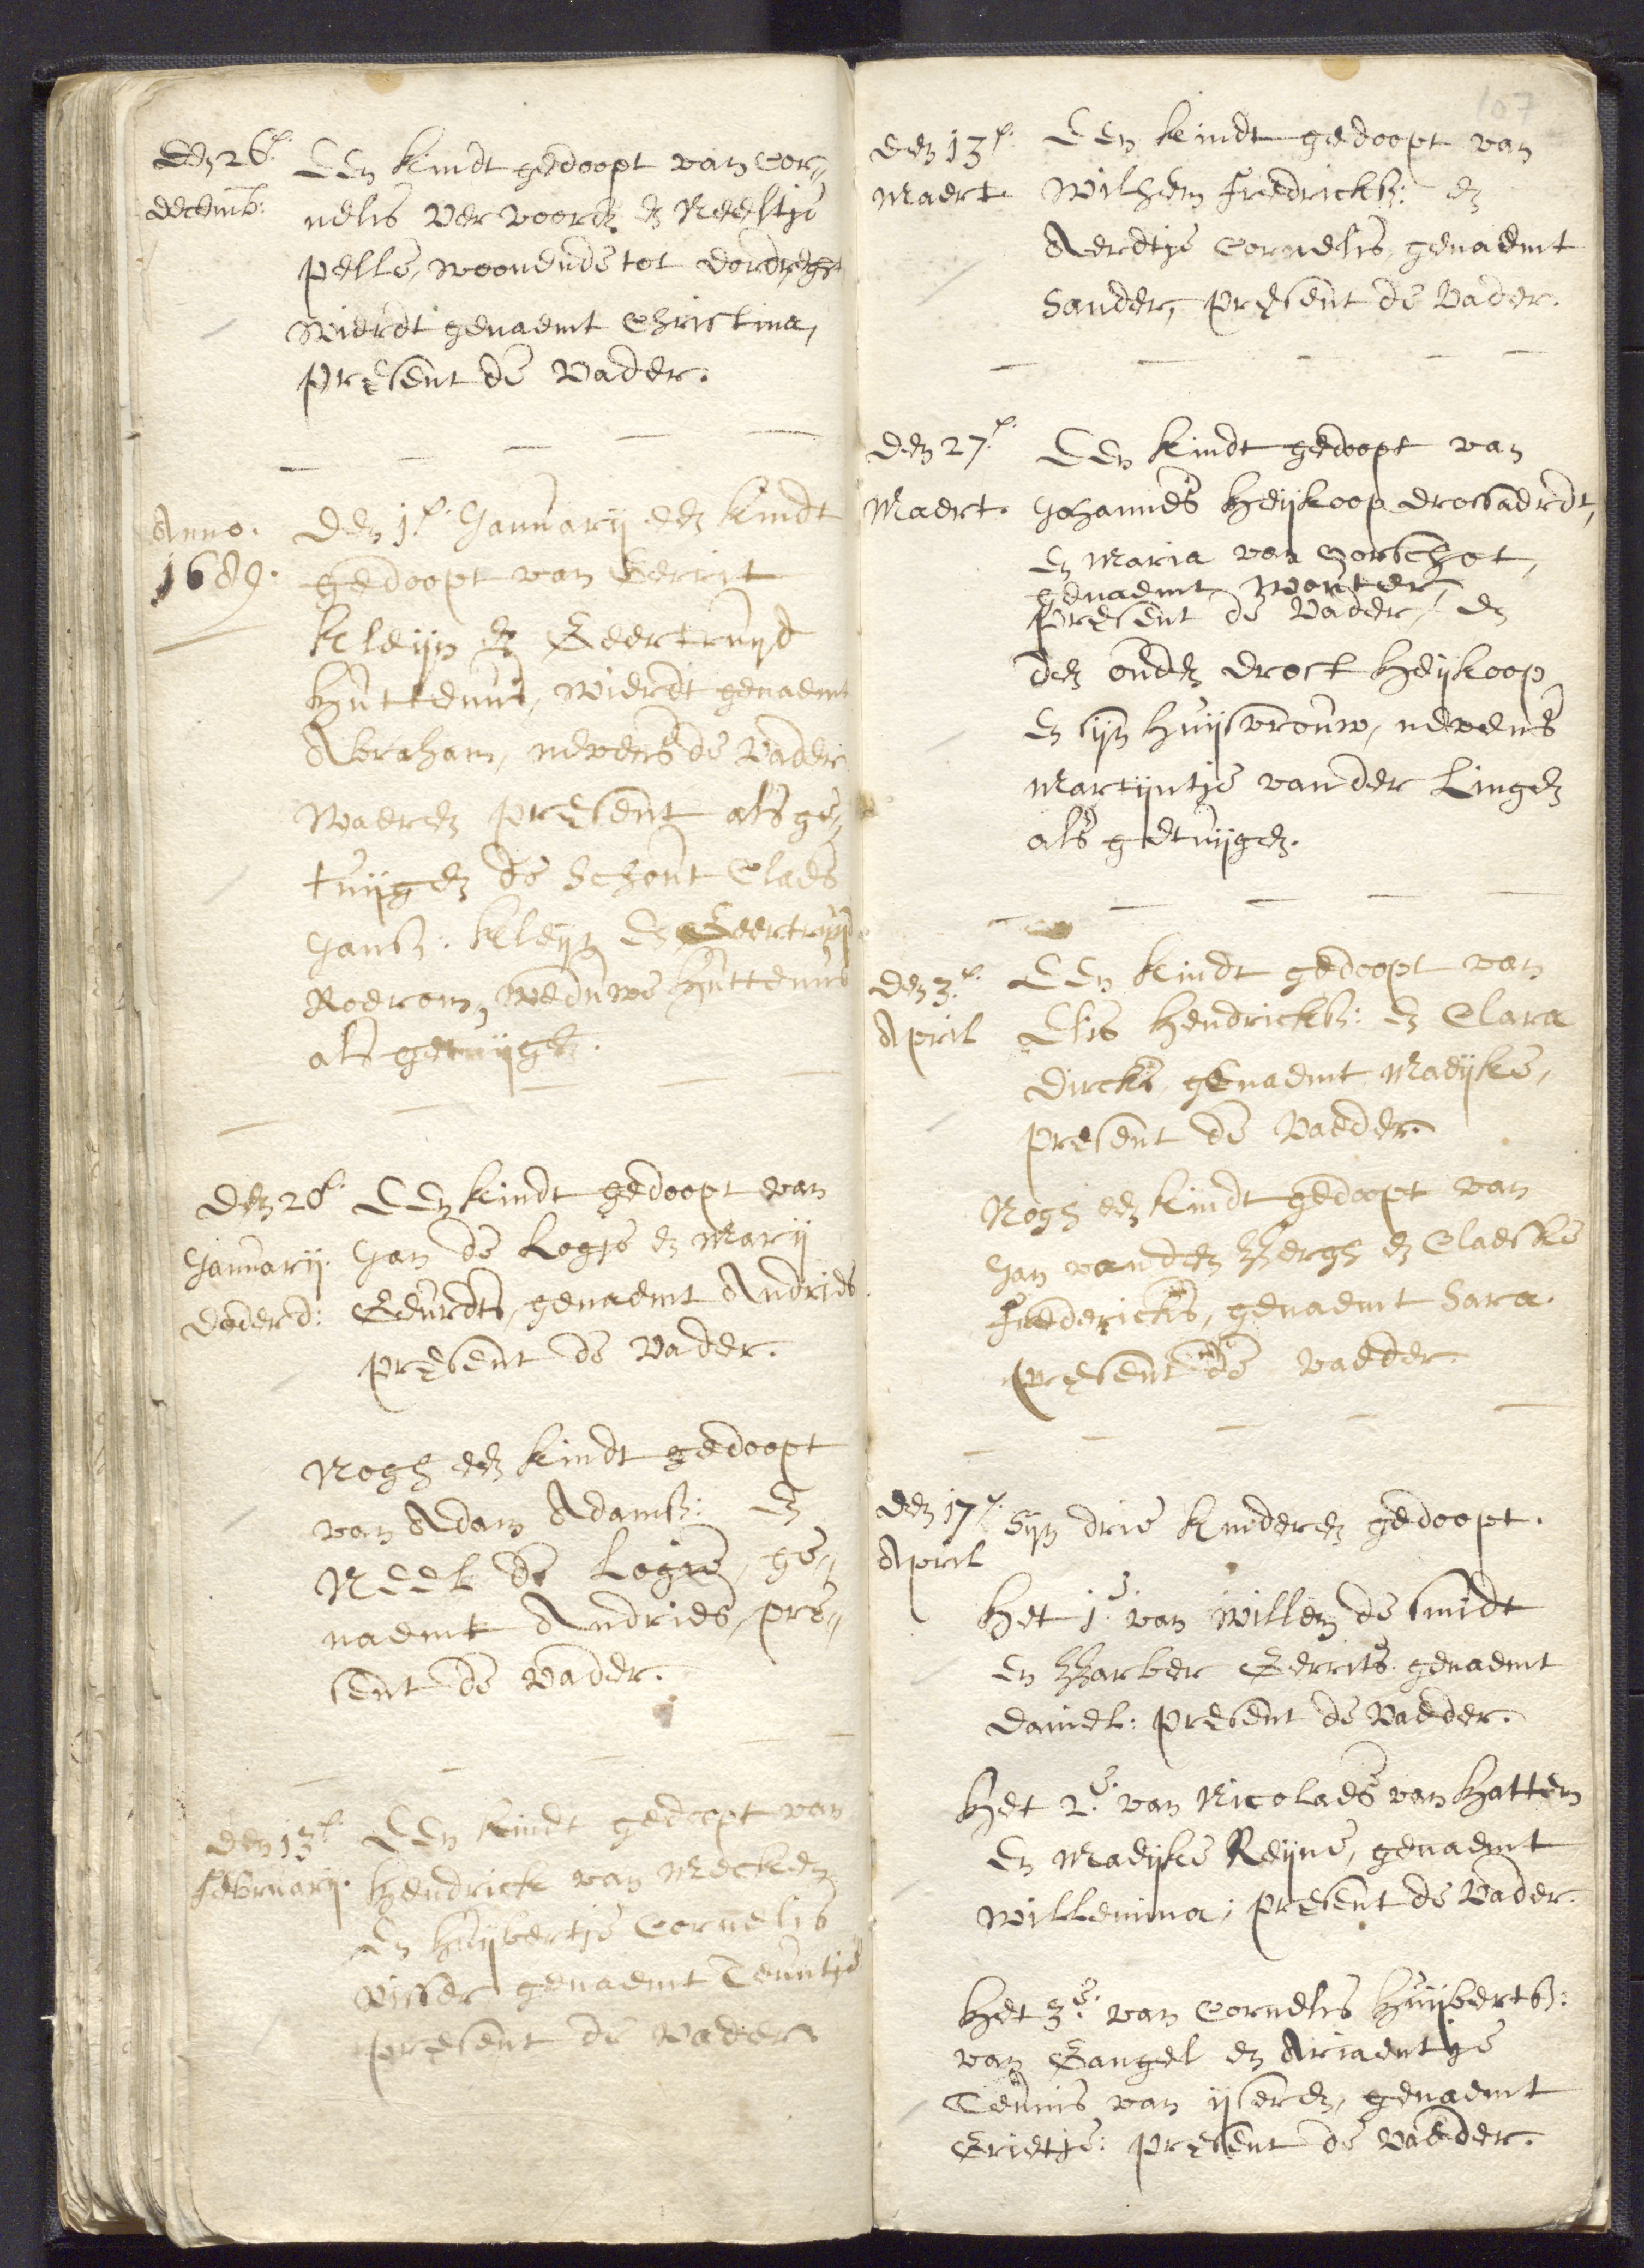 den 26e.
decemb:
Een kindt gedoopt van Cor„
nelis Vervoorn en Neeltje
pelle, woonende tot dordreght
wierdt genaemt Christina,
present de Vader.
Anno.
1689.
den 1e. January een kindt
gedoopt van Gerrit
Kleijn en Geertruijd
Huttenus, wierdt genaemt
Abraham, nevens de Vader
waeren present als ge„
tuijgen de Schout Claes
Jansz: Kleijn en Geertruijd
weduwe Huttenus
als getuijgen.
den 28e.
January.
Een kindt gedoopt van
Jan de Logje en Marij
Geurdts, genaemt Andries.
present de Vader.
Nogh een kindt gedoopt
van Adam Adamsz: en
Neel de Logie, ge„
naemt Andries, pre„
sent de Vader.
den 13e.
February.
Een kindt gedoopt van
Hendrick van Mecken
en Huijbertje Cornelis
Visser genaemt Teuntje
present de Vader
107
den 13e.
Maert
Een kindt gedoopt van
Wilhem Fredricksz: en
Aerdtje Cornelis, genaemt
Sander, present de Vader.
den 27e.
Maert.
Een kindt gedoopt van
Johannes Heijkoop drossaerdt,
en Maria van Oorschot,
genaemt Wouter,
present de Vader, en
den ouden drost Heijkoop
en sijn huijsvrouw, nevens
Martijntje vander Lingen
als getuijgen.
den 3e.
April
Een kindt gedoopt van
Elis Hendricksz: en Clara
Dircks genaemt Maeijke,
present de Vaeder.
Nogh een kindt gedoopt van
Jan vanden Bergh en Claeske
Fredericks, genaemt Sara.
present de Vaeder.
den 17e.
April
Sijn drie kinderen gedoopt.
Het 1e. van Willem de Smidt
en Barber Gerrits. genaemt
Daniel: present de Vaeder.
Het 2e. van Nicolaes van Hattem
en Maeijke Reijne, genaemt
Willemina; present de Vader.
Het 3e. van Cornelis Huijbertsz:
van Gangel en Ariaentje
Teunis van ijseren, genaemt
Grietje: present de Vaeder.